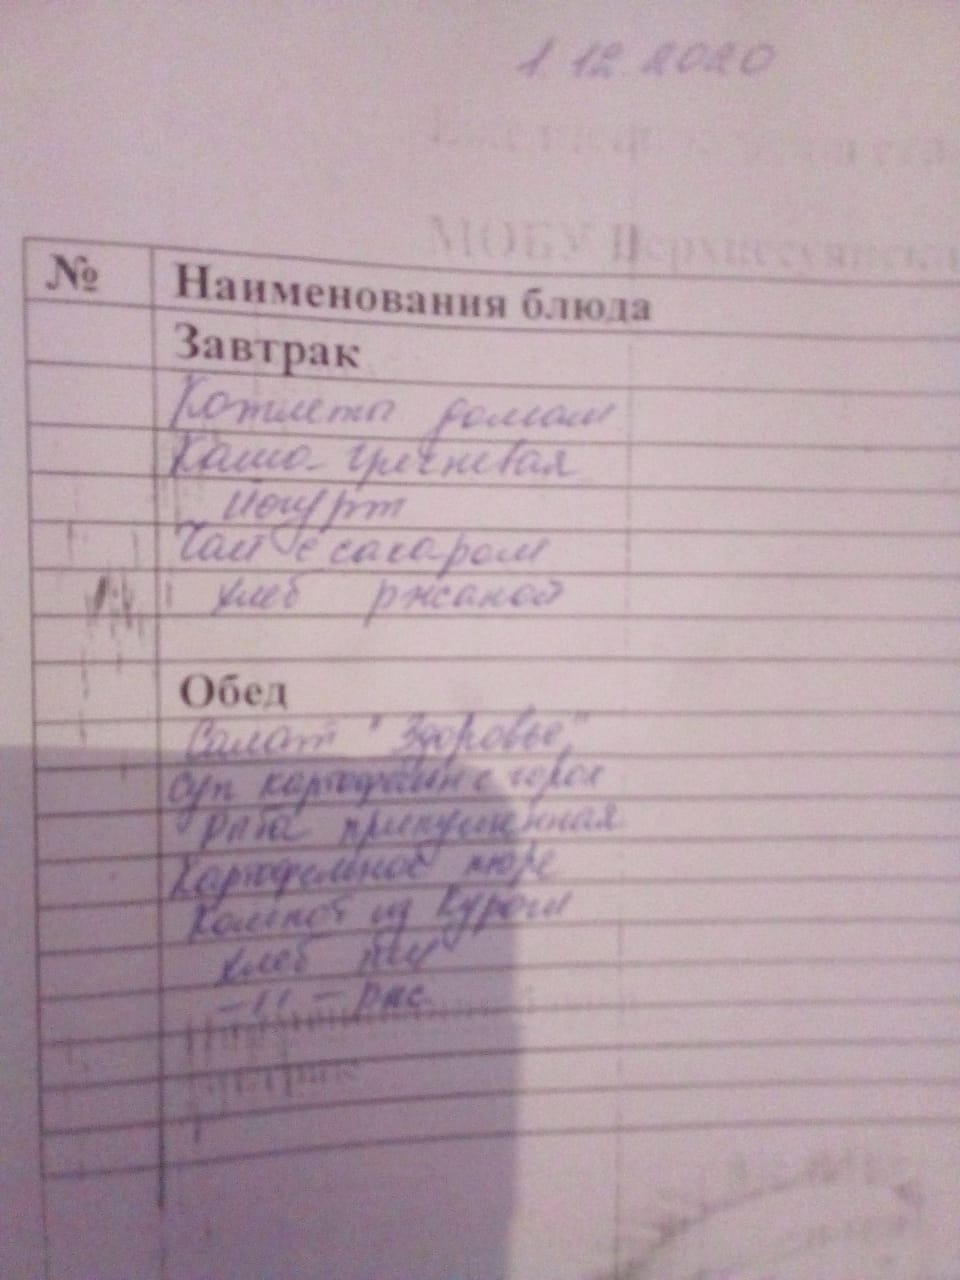 1.12.2020
МОБУ
№ Наименования блюда
Завтрак
Котлеты домаш
Каша гречневая
Йогурт
Чай с сахаром
хлеб ржаной
Обед
Салат "Здоровье"
Суп картофельн с горох
Рыба припущенная
Картофельное пюре
Компот из Кураги
хлеб пш
-//- рж.